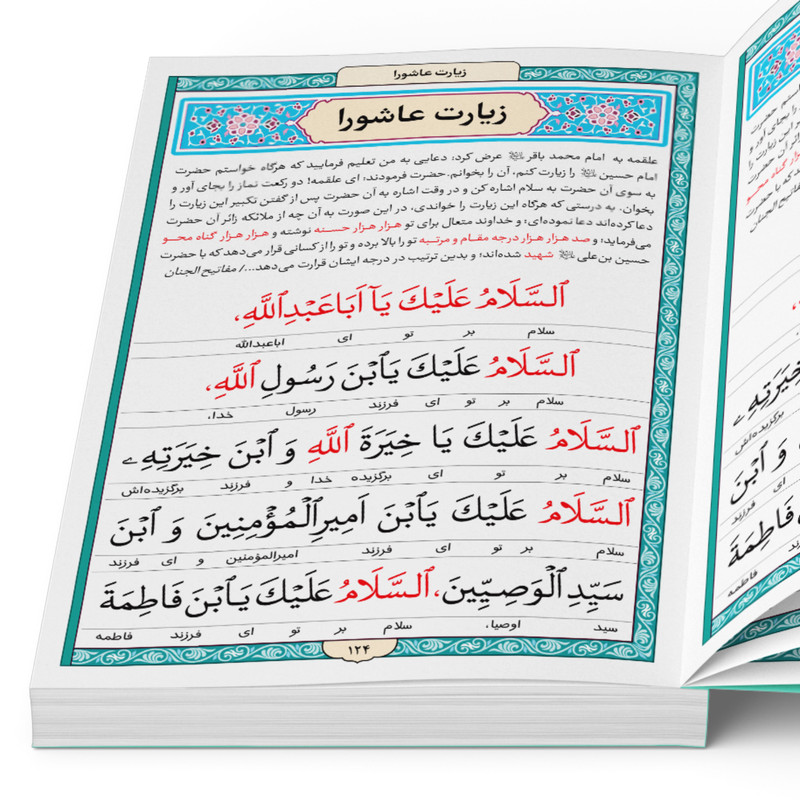 زیارت عاشورا
زیارت عاشورا
علقمه به امام محمد باقر ﷷ عرض کرد: دعایی به من تعلیم فرمایید که هرگاه خواستم حضرت
امام حسین را زیارت کنم، آن را بخوانم. حضرت فرمودند: ای علقمه! دو رکعت نماز را بجای آور و
به سوی آن حضرت به سلام اشاره کن و در وقت اشاره به آن حضرت پس از گفتن تکبیر این زیارت را
بخوان. به درستی که هرگاه این زیارت را خواندی، در این صورت به آن چه از ملائکه زائر آن حضرت
دعا کرده‌اند دعا نموده‌ای؛ و خداوند متعال برای تو هزار هزار حسنه نوشته و هزار هزار گناه محو
می‌فرماید؛ و صد هزار هزار درجه مقام و مرتبه تو را بالا برده و تو را از کسانی قرار می‌دهد که با حضرت
حسین بن‌علی شهید شده‌اند؛ و بدین ترتیب در درجه ایشان قرارت می‌دهد.../ مفاتیح الجنان
اَلسَّلَامُ عَلَيْكَ يَآ اَبَاعَبْدِاللّٰهِ،
سلام بر تو ای اباعبدالله
اَلسَّلَامُ عَلَيْكَ يَابْنَ رَسُولِ اللّٰهِ،
سلام بر تو ای فرزند رسول خدا،
اَلسَّلَامُ عَلَيْكَ يَا خِيَرَةَ اللّٰهِ وَ ابْنَ خِيَرَتِهِۦ
سلام بر تو ای برگزیده خدا و فرزند برگزیده‌اش
اَلسَّلَامُ عَلَيْكَ يَابْنَ اَمِيرِالْمُؤْمِنِينَ وَ ابْنَ
سلام بر تو ای فرزند امیرالمؤمنین و ای فرزند
سَيِّدِ الْوَصِيِّينَ، اَلسَّلَامُ عَلَيْكَ يَابْنَ فَاطِمَةَ
سید اوصیا، سلام بر تو ای فرزند فاطمه
۱۲۴